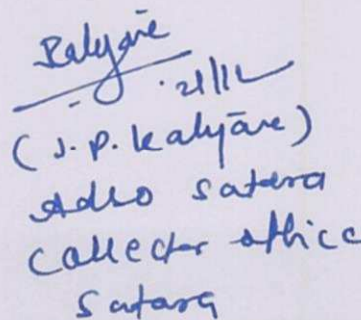 21/12
(J. P. Kalyāne)
Adho Satara
Collector office
Satara